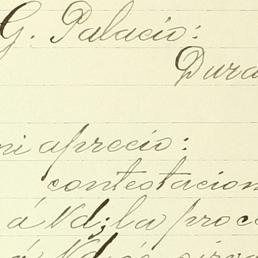 G. Palacio:
Dura
mi aprecio:
contestacion
á Vd; la proc
á Vd